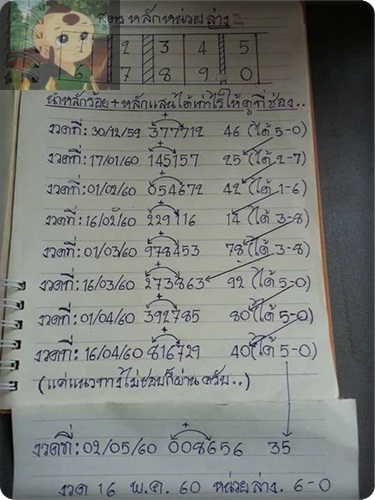 สูตร หลักหน่วยล่าง
1 2 3 4 5
6 7 8 9 0
นำหลักร้อย+หลักแสนได้เท่าไรให้ดูที่ช่อง..
งวดที่: 30/12/59 377712 46 (ได้ 5-0)
งวดที่: 17/01/60 145157 25 (ได้ 2-7)
งวดที่: 01/02/60 054672 42 (ได้ 1-6)
งวดที่: 16/02/60 229116 14 (ได้ 3-8)
งวดที่: 01/03/60 978453 78 (ได้ 3-8)
งวดที่: 16/03/60 273863 92 (ได้ 5-0)
งวดที่: 01/04/60 392785 80 (ได้ 5-0)
งวดที่: 16/04/60 816729 40 (ได้ 5-0)
(แค่แนวทางไม่ชอบก็ผ่านครับ..)
งวดที่: 02/05/60 008656 35
งวด 16 พ.ค. 60 หน่วยล่าง. 6-0